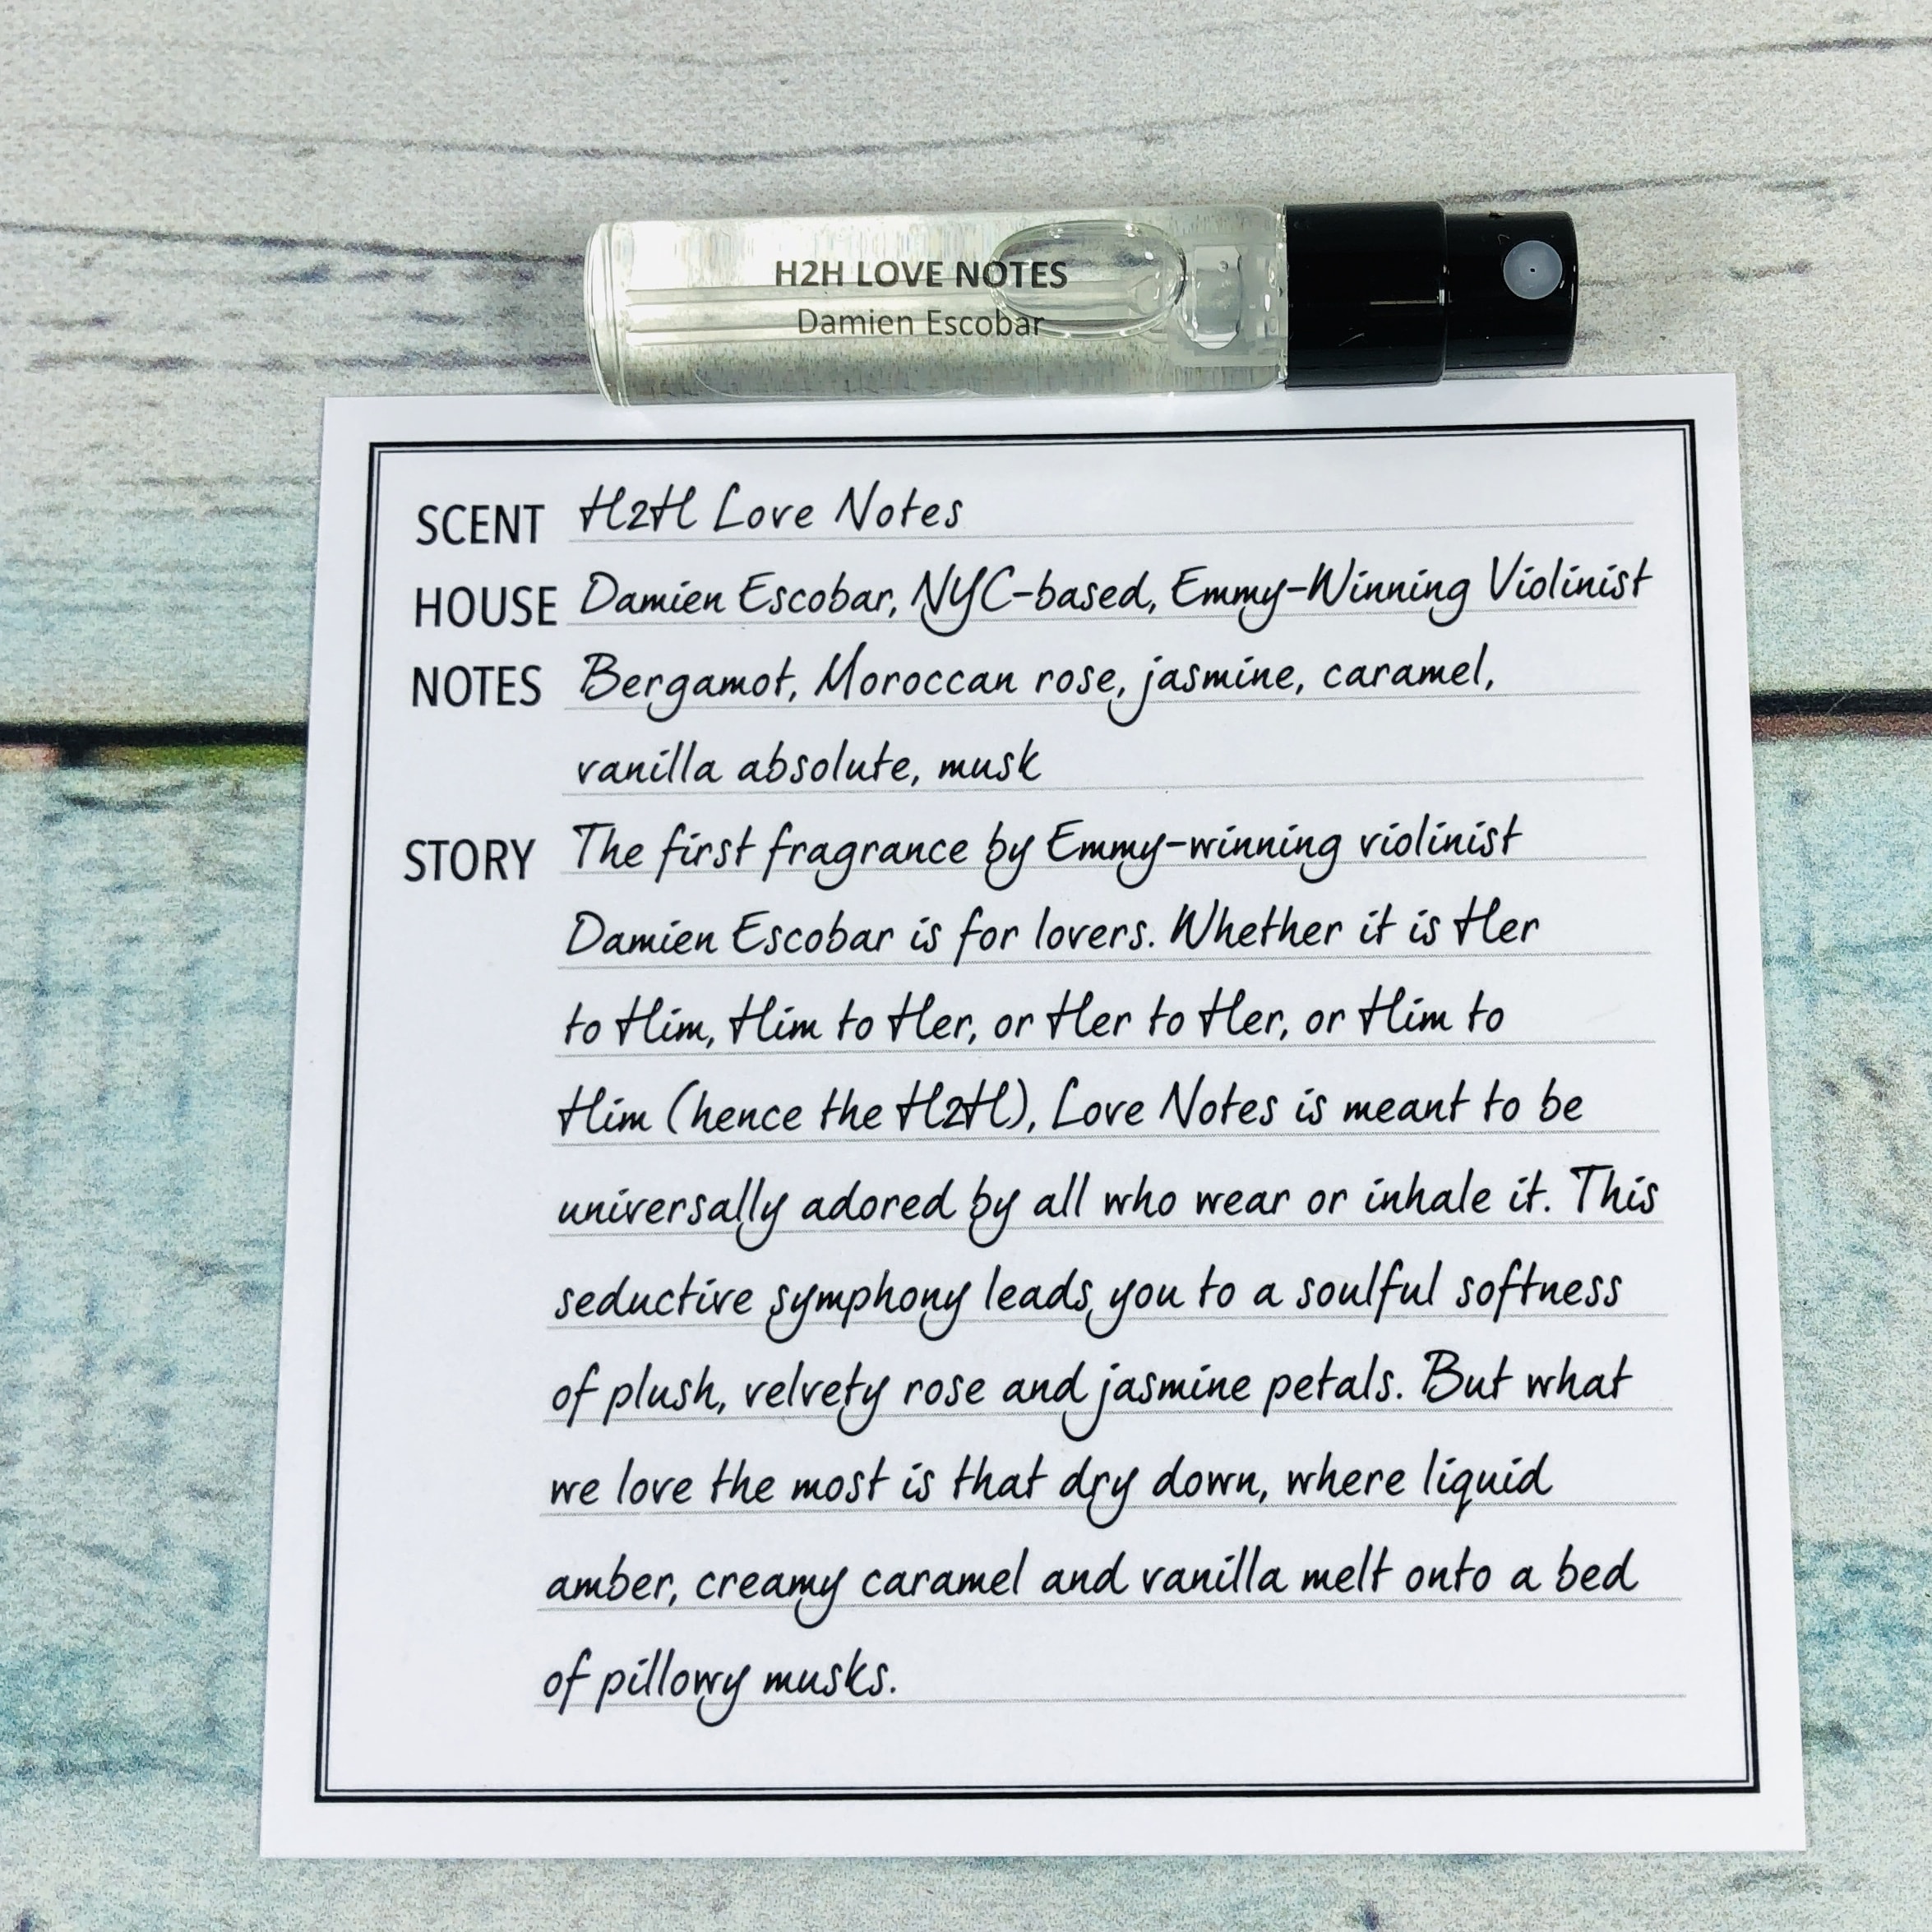 H2H LOVE NOTES
Damien Escobar
SCENT H2H Love Notes
HOUSE Damien Escobar, NYC-based, Emmy-Winning Violinist
NOTES Bergamot, Moroccan rose, jasmine, caramel,
vanilla absolute, musk
STORY The first fragrance by Emmy-winning violinist
Damien Escobar is for lovers. Whether it is Her
to Him, Him to Her, or Her to Her, or Him to
Him (hence the H2H), Love Notes is meant to be
universally adored by all who wear or inhale it. This
seductive symphony leads you to a soulful softness
of plush, velvety rose and jasmine petals. But what
we love the most is that dry down, where liquid
amber, creamy caramel and vanilla melt onto a bed
of pillowy musks.